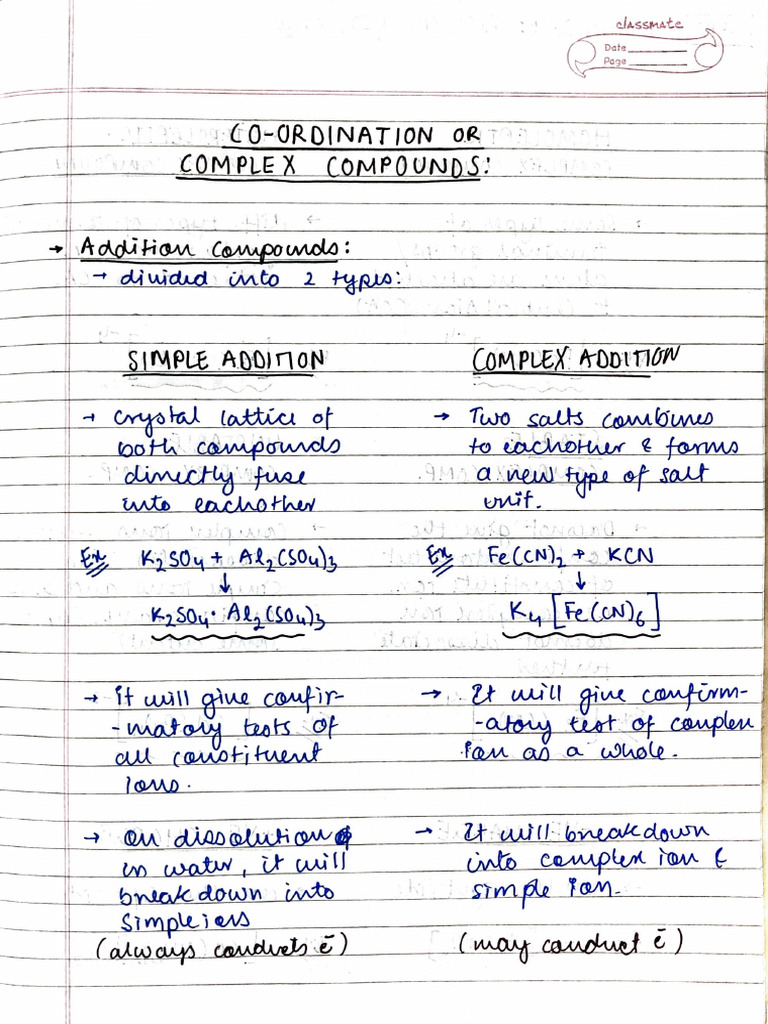 classmate
Date
Page
CO-ORDINATION OR
COMPLEX COMPOUNDS:
→ Addition Compounds:
→ divided into 2 types:
SIMPLE ADDITION
→ crystal lattice of
both compounds
directly fuse
into eachother
Ex K₂SO₄ + Al₂(SO₄)₃
↓
K₂SO₄·Al₂(SO₄)₃
→ It will give confir-
-matory tests of
all constituent
ions.
→ On dissolution
in water, it will
breakdown into
simple ions
(always conducts ē)
COMPLEX ADDITION
→ Two salts combines
to eachother & forms
a new type of salt
unit.
Ex Fe(CN)₂ + KCN
↓
K₄[Fe(CN)₆]
→ It will give confirm-
-atory test of complex
ion as a whole.
→ It will breakdown
into complex ion &
simple ion.
(may conduct ē)